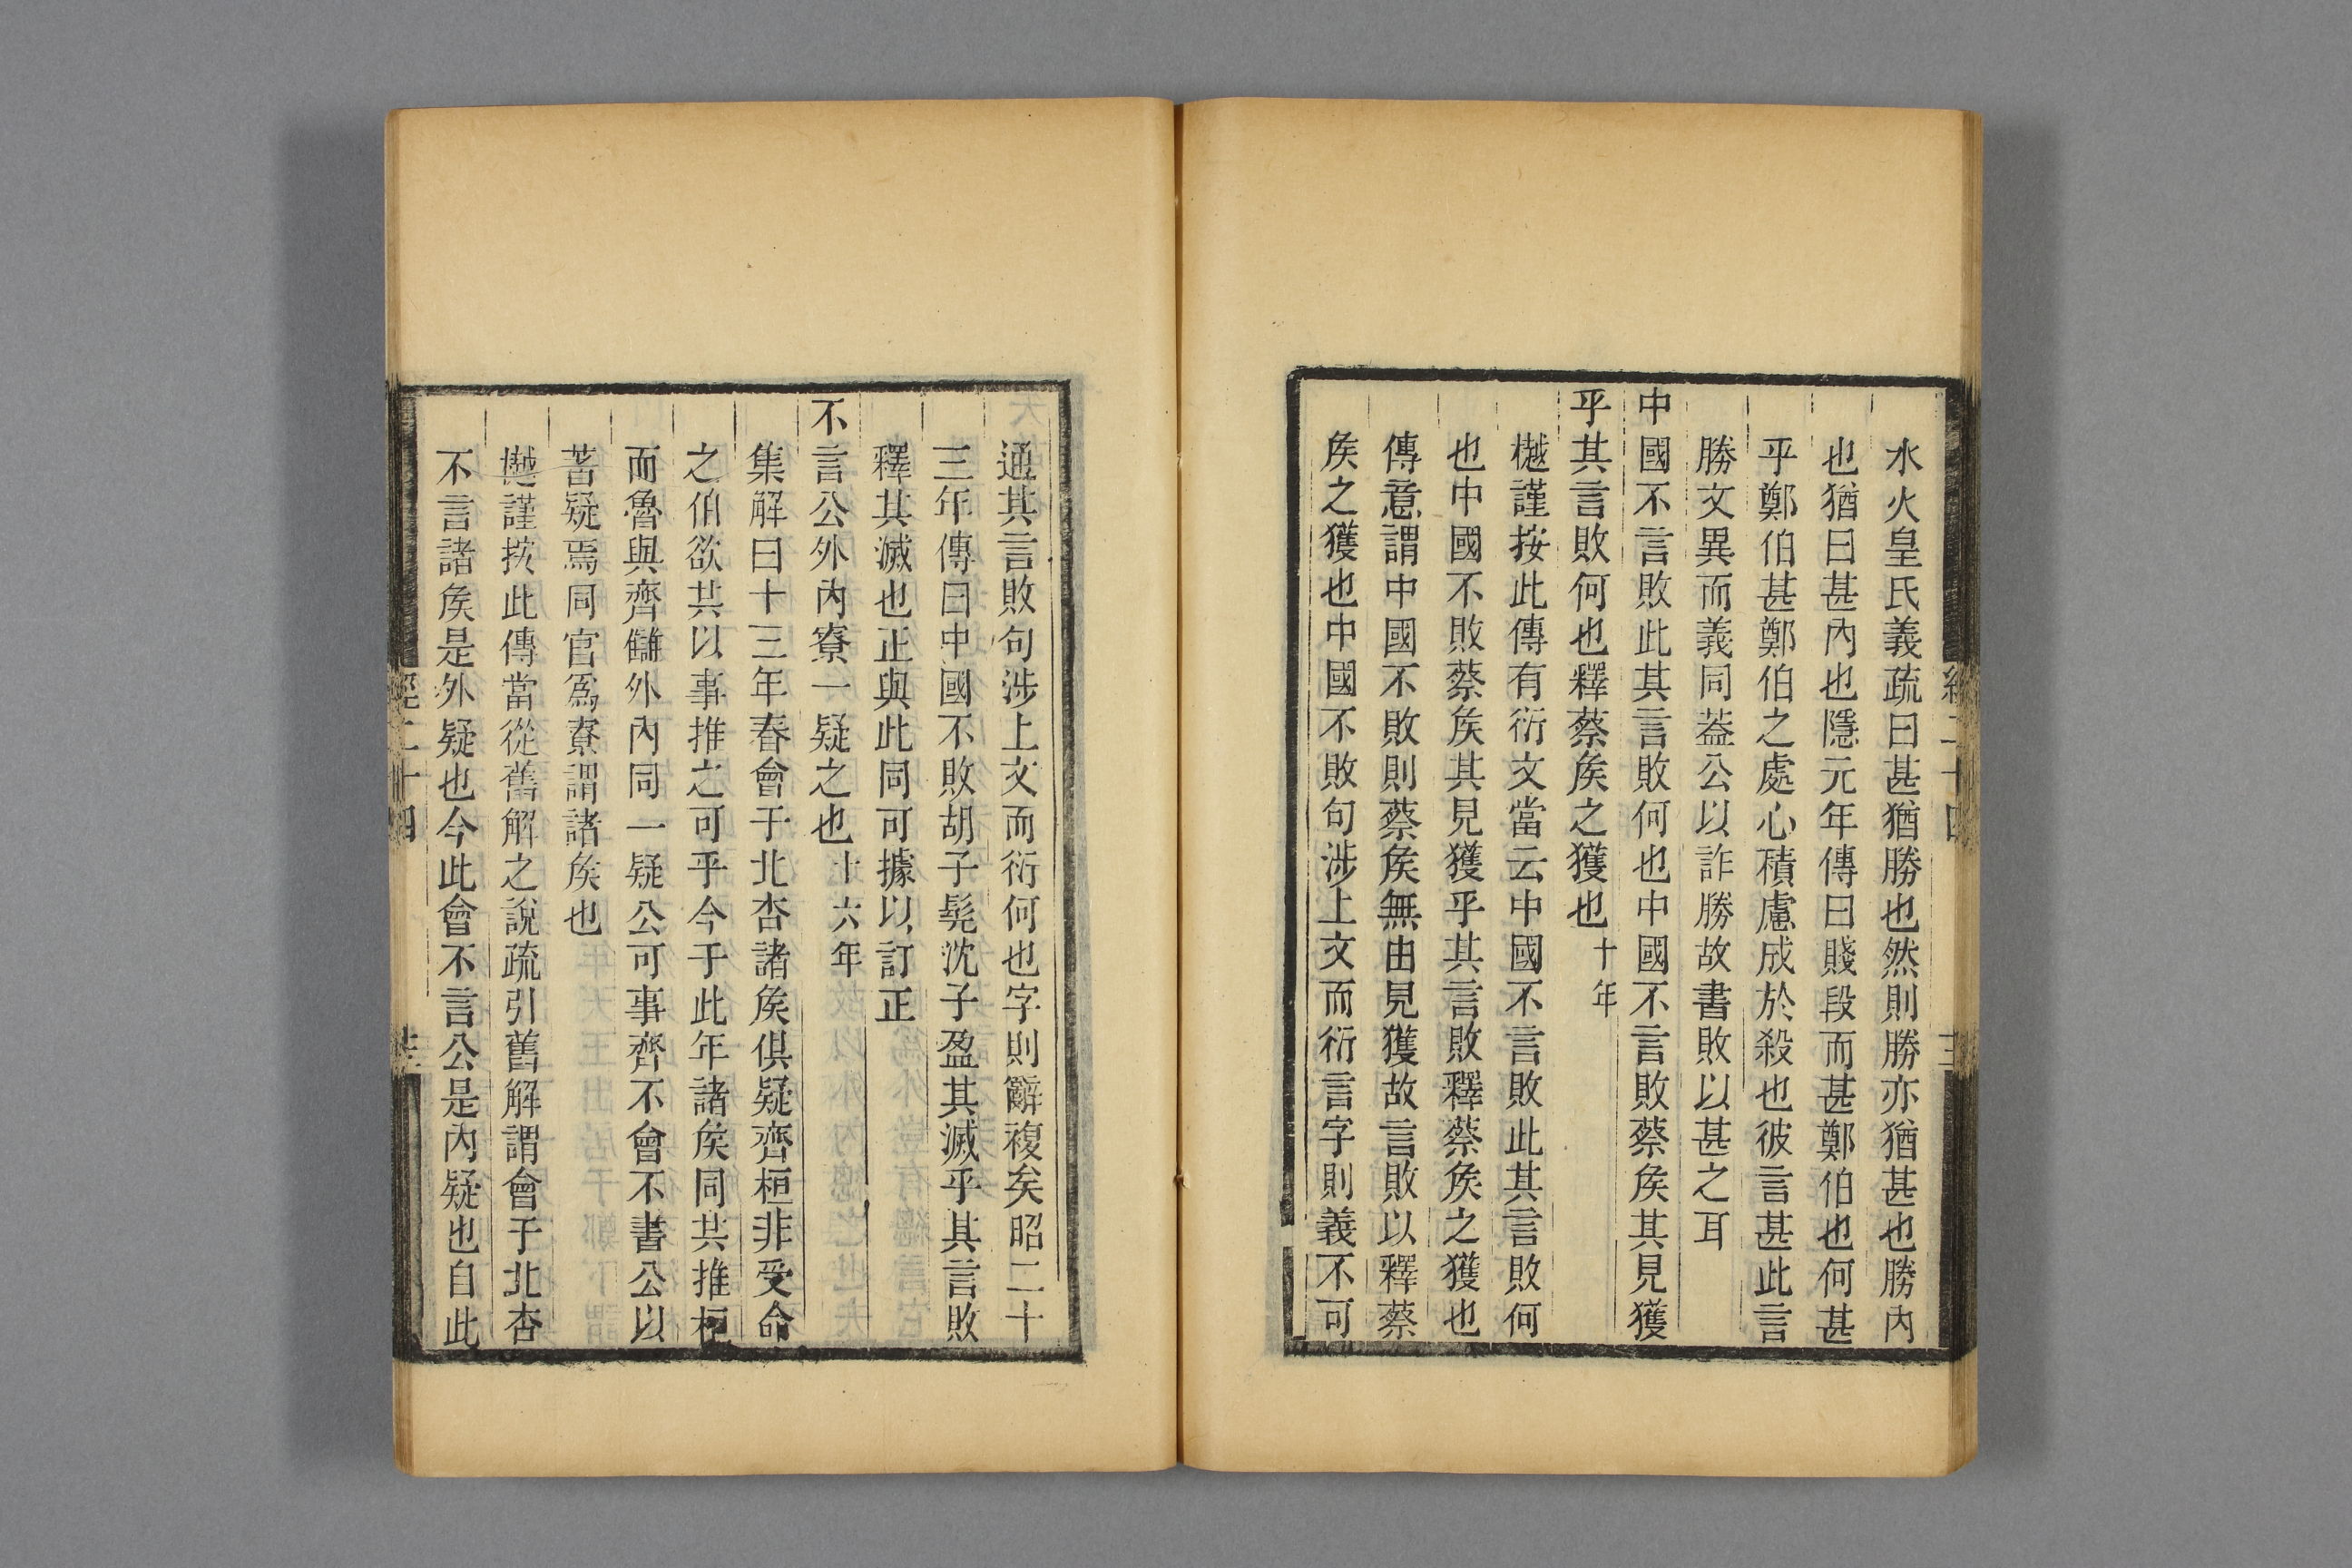 水火皇氏義疏曰甚猶勝也然則勝亦猶甚也勝內
也猶曰甚內也隱元年傳曰賤段而甚鄭伯也何甚
乎鄭伯甚鄭伯之處心積慮成於殺也彼言甚此言
勝文異而義同葢公以詐勝故書敗以甚之耳
中國不言敗此其言敗何也中國不言敗蔡矦其見獲
乎其言敗何也釋蔡矦之獲也十年
樾謹按此傳有衍文當云中國不言敗此其言敗何
也中國不敗蔡矦其見獲乎其言敗釋蔡矦之獲也
傳意謂中國不敗則蔡矦無由見獲故言敗以釋蔡
矦之獲也中國不敗句涉上文而衍言字則義不可
通其言敗句涉上文而衍何也字則辭複矣昭二十
三年傳曰中國不敗胡子髡沈子盈其滅乎其言敗
釋其滅也正與此同可據以訂正
不言公外內寮一疑之也十六年
集解曰十三年春會于北杏諸矦俱疑齊桓非受命
之伯欲共以事推之可乎今于此年諸矦同共推桓
而魯與齊讎外內同一疑公可事齊不會不書公以
著疑焉同官爲寮謂諸矦也
樾謹按此傳當從舊解之說疏引舊解謂會于北杏
不言諸矦是外疑也今此會不言公是內疑也自此
經二十四